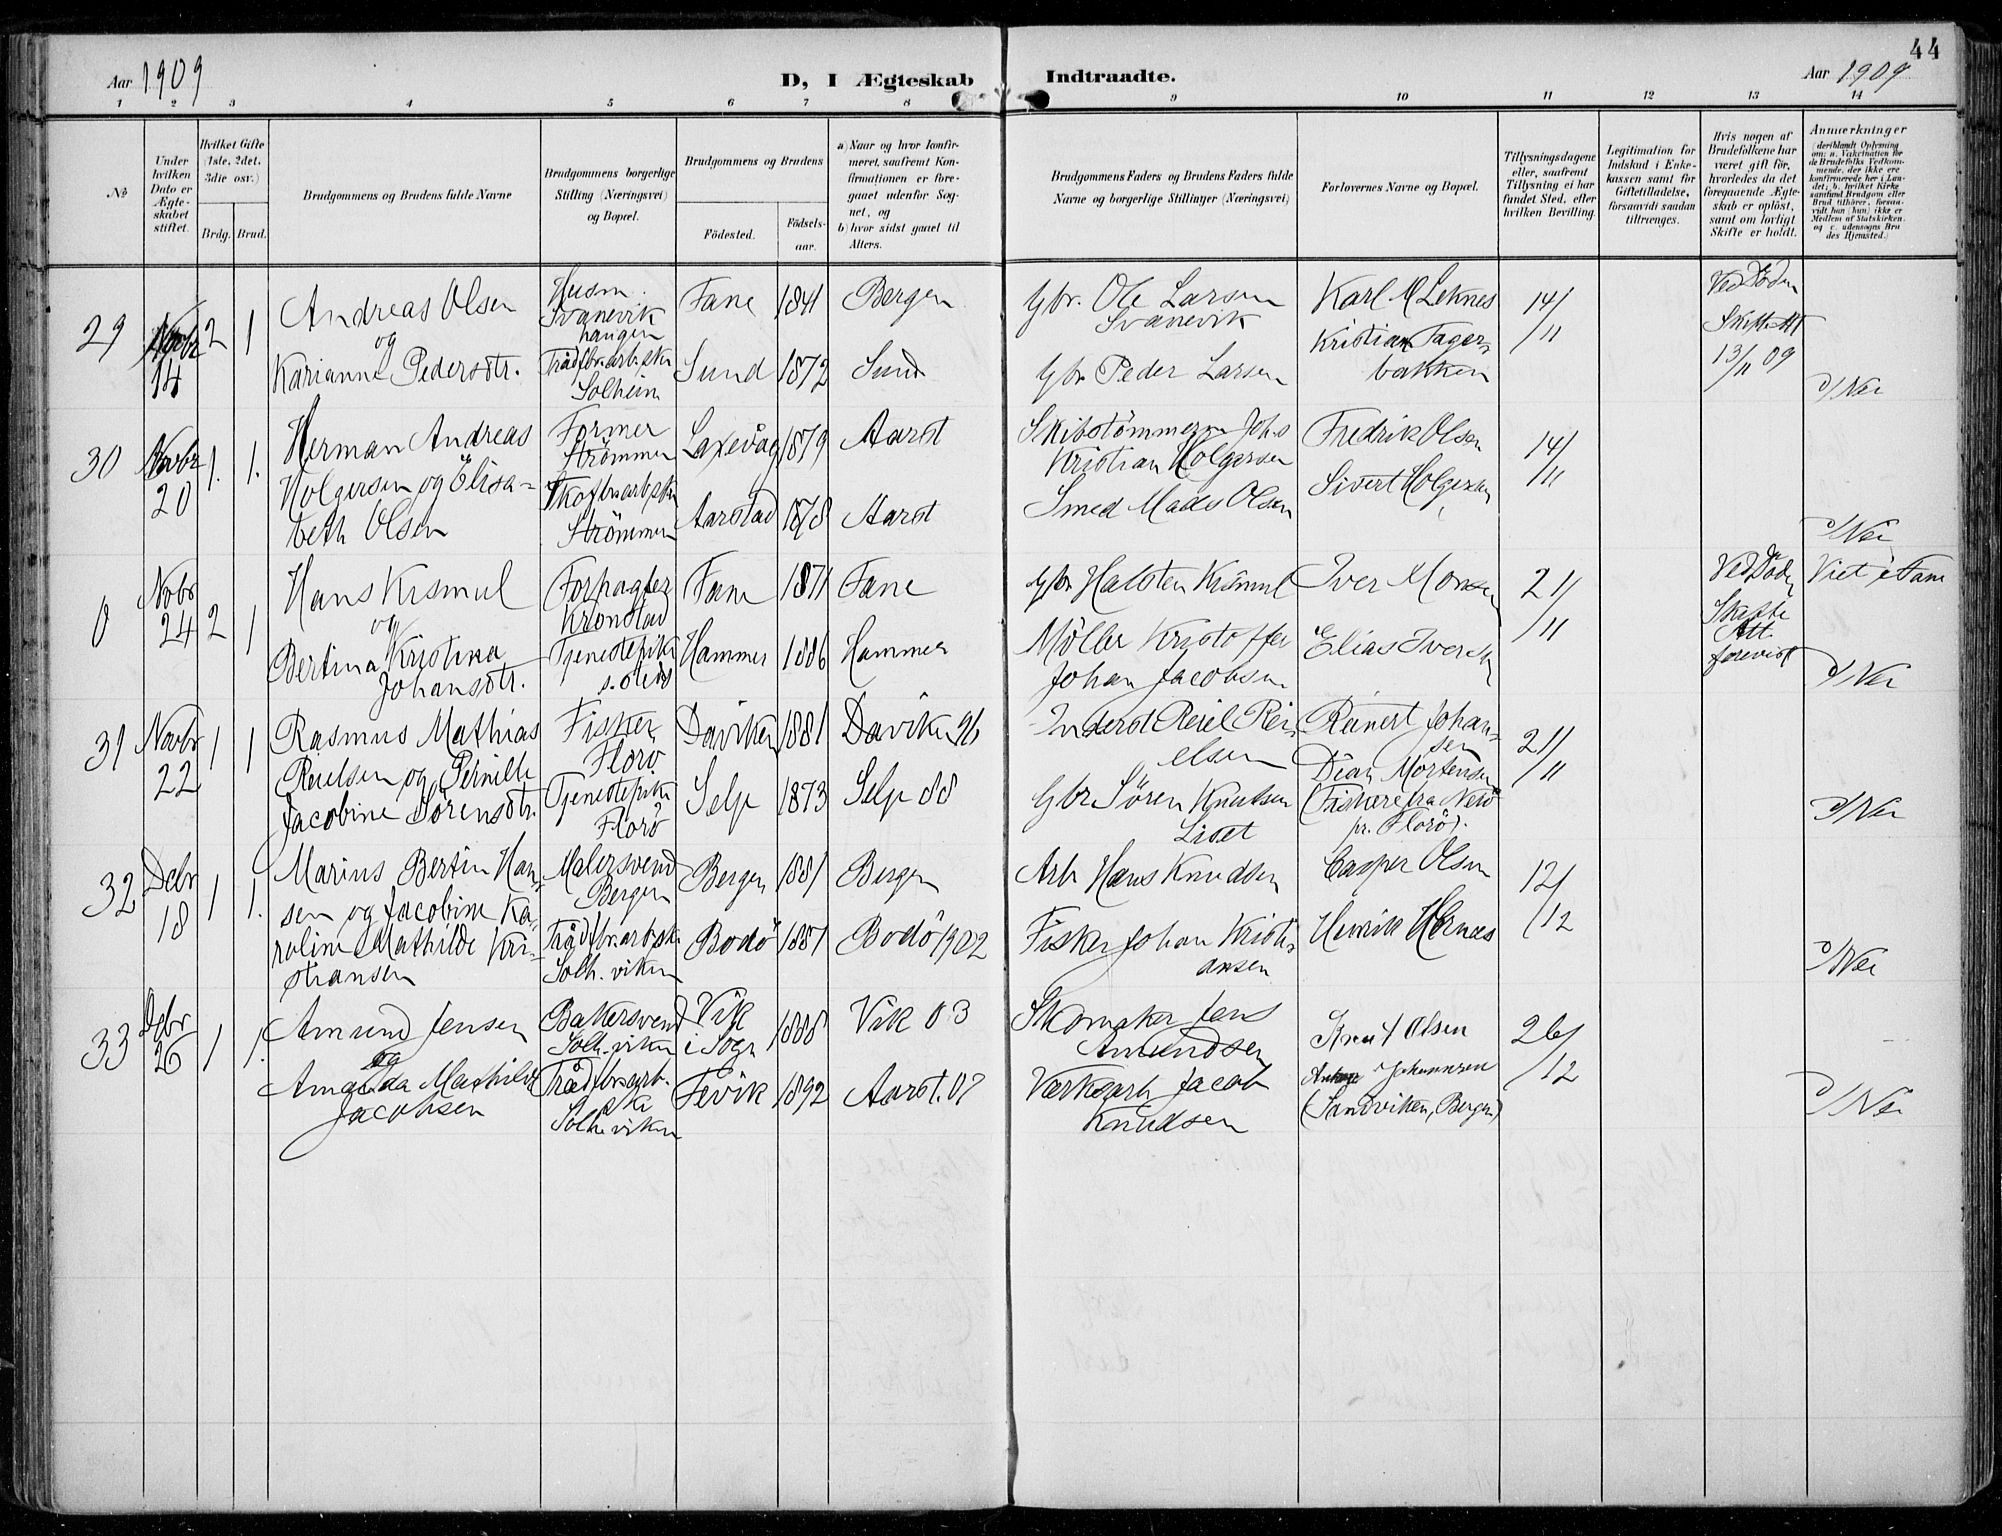 44
Aar 1909
D, I Ægteskab Indtraadte.
Aar 1909
1 2 3 4 5 6 7 8 9 10 11 12 13 14
№
Under hvilken Dato er Ægteskabet stiftet.
Hvilket Gifte (1ste, 2det, 3die osv.)
Brdg. Brud.
Brudgommens og Brudens fulde Navne
Brudgommens borgerlige Stilling (Næringsvei) og Bopæl.
Brudgommens og Brudens
Fødested.
Fødselsaar.
a) Naar og hvor konfirmeret, saafremt Konfirmationen er foregaaet udenfor Sognet, og
b) hvor sidst gaaet til Alters.
Brudgommens Faders og Brudens Faders fulde Navne og borgerlige Stillinger (Næringsvei)
Forlovernes Navne og Bopæl.
Tillysningsdagene eller, saafremt Tillysning ei har fundet Sted, efter hvilken Bevilling.
Legitimation for Indskud i Enkekassen samt for Giftetilladelse, forsaavidt saadan tiltrænges.
Hvis nogen af Brudefolkene har været gift før, hvorledes da det foregaaende Ægteskab er opløst, samt om lovligt Skifte er holdt.
Anmærkninger
29 Novbr 14 2 1
Andreas Olsen
og
Karianne Pedersdtr.
Husm.
Svanevik
haugen
Trådfbr.arb.ske
Solheim
Fane 1841 Bergen
Sund 1872 Sund
Gbr. Ole Larsen
Svanevik
Gbr. Peder Larsen
Karl M Leknes
Kristian Fager-
bakken
14/
/11
Ved Döden
Skifte Att
13/11 09
c/ Nei
30 Novbr 20 1. 1.
Herman Andreas
Holgersen og Elisa-
beth Olsen
Former
Strömmen
Skofbr.arb.ske
Strömmen
Laxevåg 1879 Aarst
Aarstad 1878 Aarst
Skibstömmerm Johs
Kristian Holgersen
Smed Mads Olsen
Fredrik Olsen
Sivert Holgersen
14/
/11
c/ Nei
0 Novbr 24 2 1
Hans Kismul
og
Bertina Kristina
Johansdtr.
Forpagter
Kronstad
Tjenestepike
s. steds
Fane 1871 Fane
Hammer 1886 Hammer
Gbr. Halsten Krismul
Möller Kristoffer
Johan Jacobsen
Iver Monsen
Elias Iversen
21/
/11
Ved Döden
Skifte
Att.
forevist
Viet i Fane
c/ Nei
31 Novbr 22 1 1
Rasmus Mathias
Reielsen og Pernille
Jacobine Sörensdtr.
Fisker,
Florö
Tjenestepike
Florö
Daviken 1881 Daviken 96
Selje 1873 Selje 88
Inderst Reiel Rei-
elsen
Gbr Sören Knutsen
Liset
Reinert Johan-
sen
Dean Mortensen
(Fiskere fra Nesö
pr. Florö).
21/
/11
c/ Nei
32 Debr 18 1 1.
Marius Bertin Han-
sen og Jacobine Ka-
roline Mathilde Kri-
stiansen
Malersvend
Bergen
Trådfbr.arb.ske
Solh. viken
Bergen 1881 Bergen
Bodö 1887 Bodö 1902
Arb Hans Knudsen
Fisker Johan Kristi-
ansen
Casper Olsen
Henrik Hornes
12/
/12
c/ Nei
33 Debr 26 1 1.
Amund Jensen
og
Amanda Mathilde
Jacobsen
Bakersvend
Solh. viken
Trådfbr.arb.
ske
Solh. viken
Vik
i Sogn 1888 Vik 03
Fevik 1892 Aarst. 07
Skomaker Jens
Amundsen
Værksarb. Jacob
Knudsen
Knut Olsen
Johannesen
(Sandviken, Bergen)
26/
/12
c/ Nei